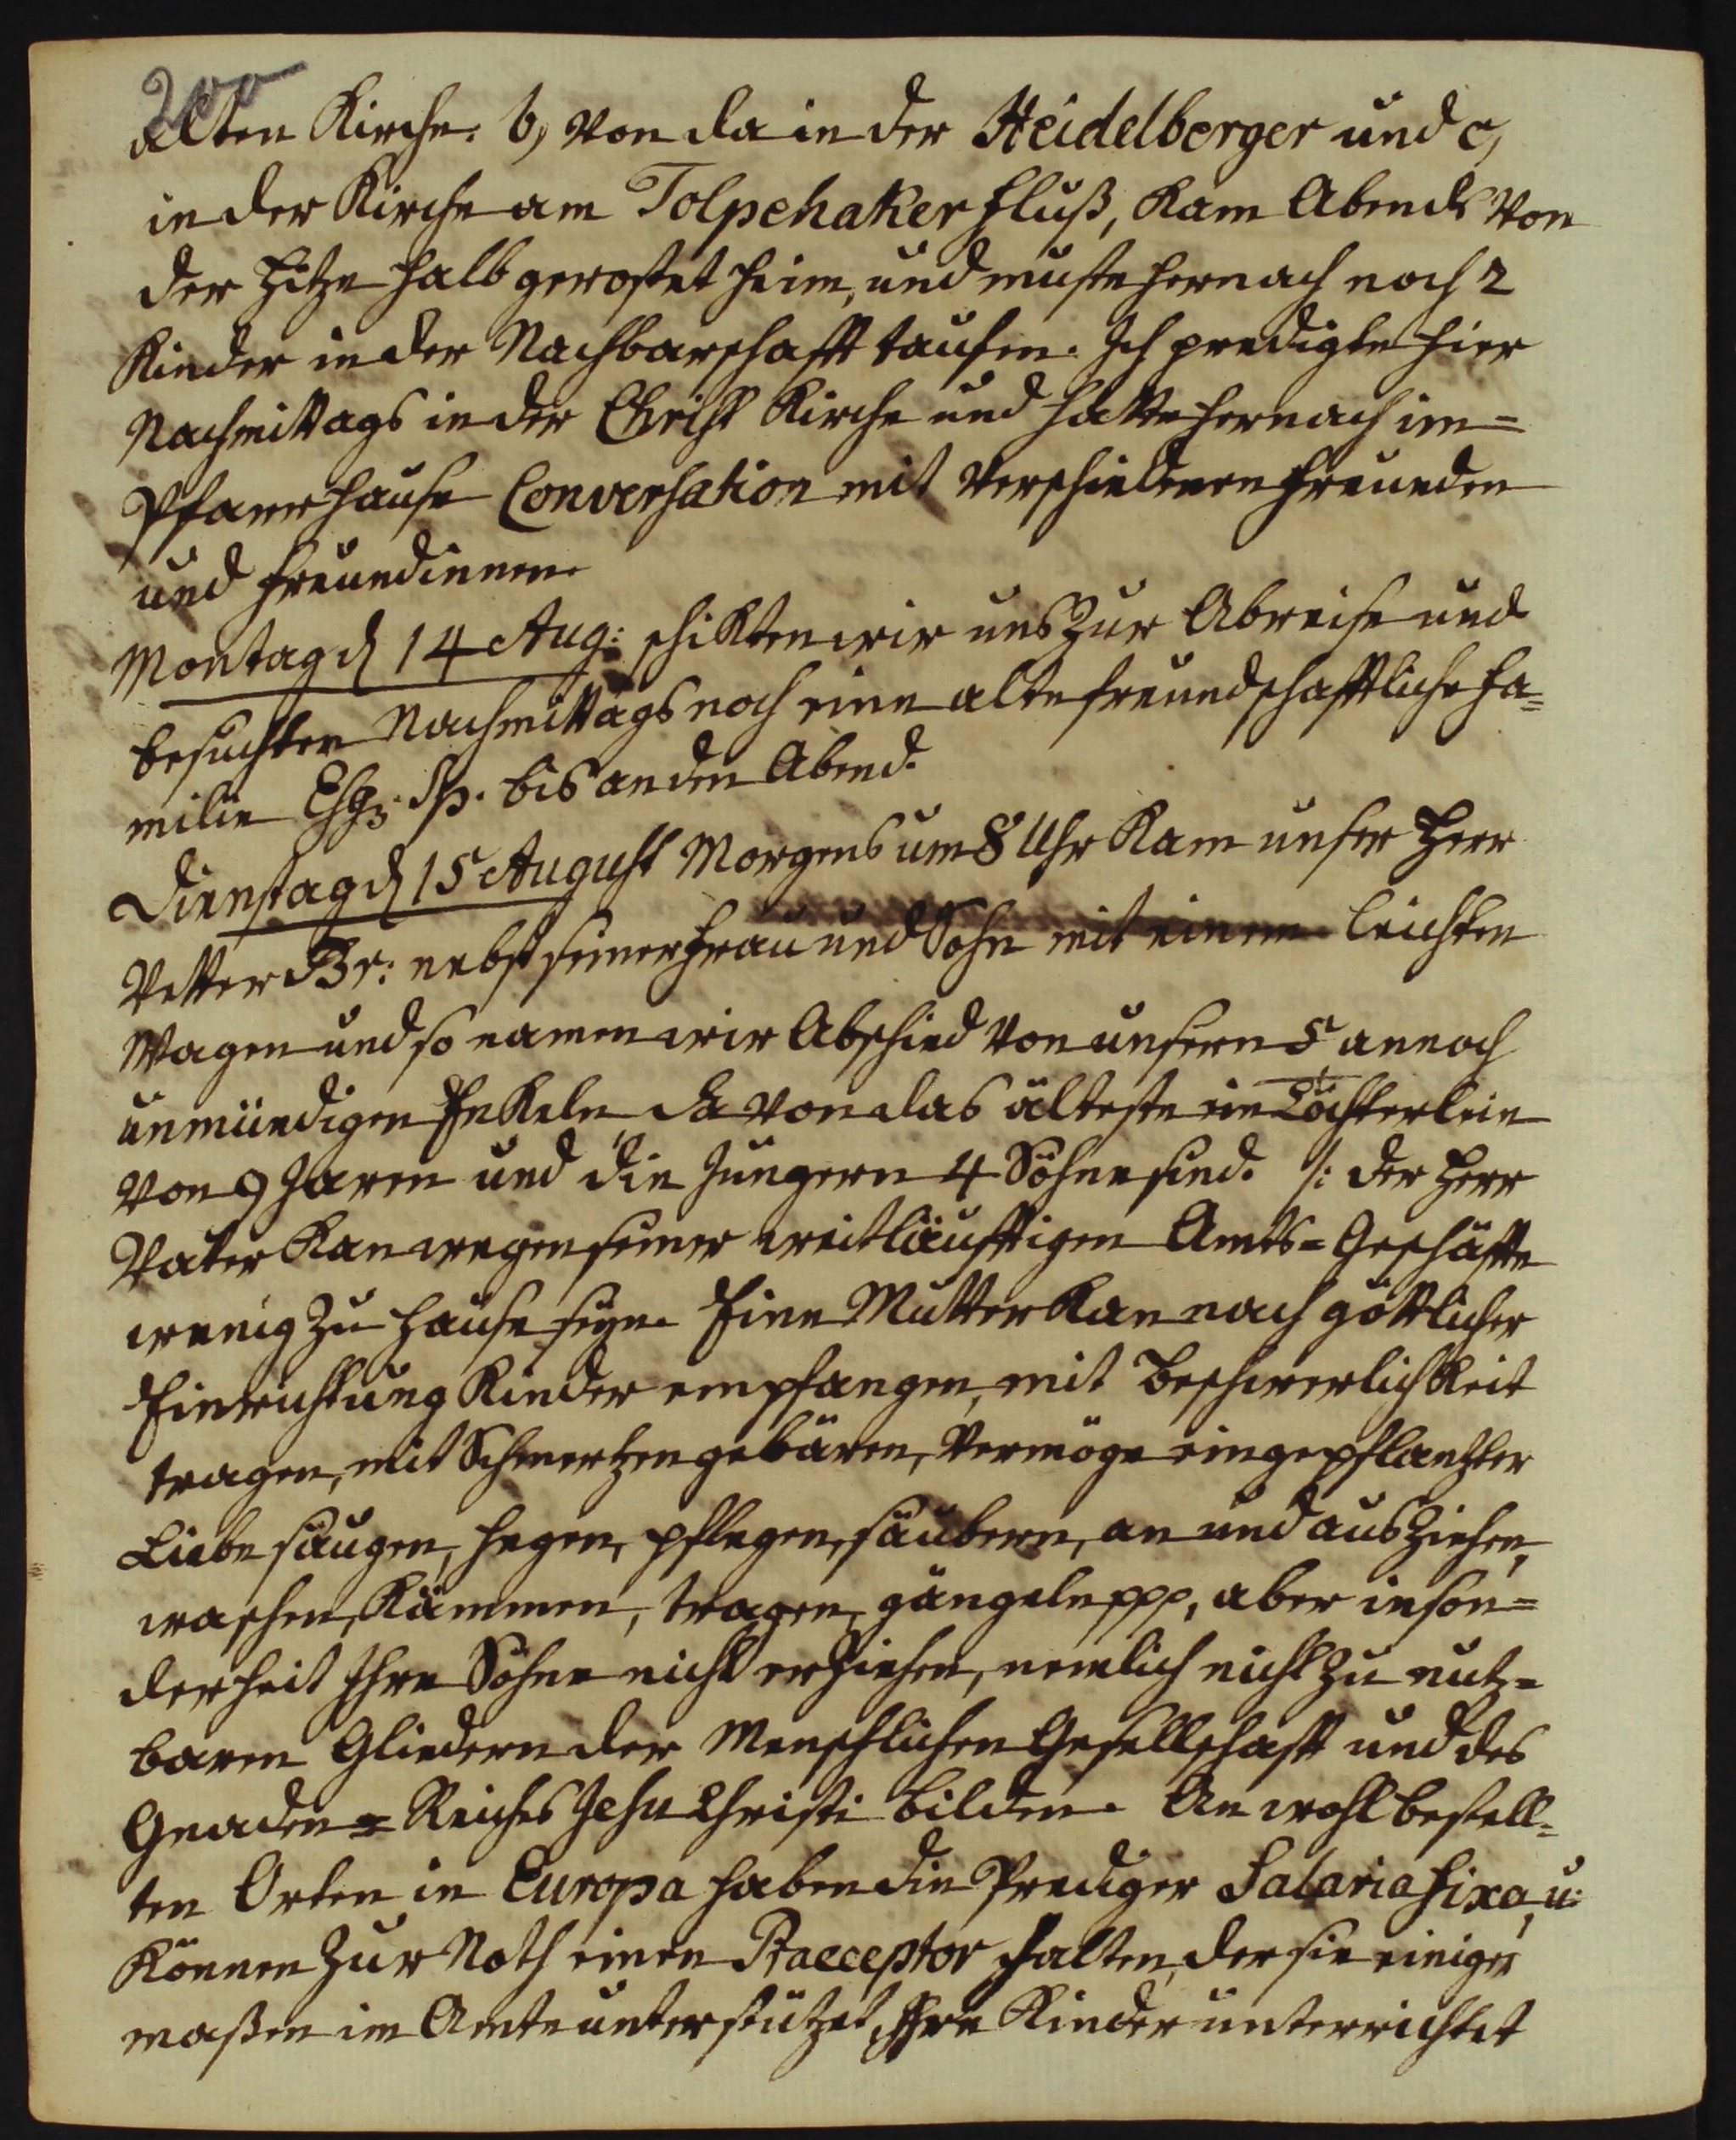 200
alten Kirche. b, von da in der Heidelberger und c,
in der Kirche am Tolpehaker fluß, kam Abends von
der Hitze halb gerostet heim, und muste hernach noch 2
Kinder in der Nachbarschafft taufen. Ich predigte hier
Nachmittags in der Christ Kirche und hatte hernach im=
Pfarrhause Conversation mit verschiedenen freunden
und freundinnen.
Montag d 14 Aug: schikten wir uns zur Abreise und
besuchten Nachmittags noch eine alte freundschafftliche Fa=
milie Esqr: Sp. bis an den Abend.
Dienstag d 15 August Morgens um 8 Uhr kam unser Herr
Vetter Br: nebst seiner frau und Sohn mit einem leichten
Wagen und so namen wir Abschied von unsern 5 annoch
unmündigen Enkeln davon das älteste ein Töchterlein
von 9 Jaren und die jüngern 4 Söhne sind. /: der Herr
Vater kan wegen seiner weitläufftigen Amts=Geschäfte
wenig zu Hause seyn. Eine Mutter kan nach göttlicher
Einrichtung Kinder empfangen, mit Beschwerlichkeit
tragen, mit Schmertzen gebären, vermöge eingepflantzter
Liebe säugen, hegen, pflegen, säubern, an und ausziehen,
waschen, kämmen, tragen, gängeln ppp, aber inson=
derheit Ihre Söhne nicht erziehen, nemlich nicht zu nutz=
baren Gliedern der Menschlichen Gesellschafft und des
Gnaden=Reiches Jesu Christi bilden. An wohl bestell=
ten Orten in Europa haben die Prediger Salaria fixa, u:
können zur Noth einen Praeceptor halten, der sie einiger
maßen im Amte unterstützet, Ihre Kinder unterrichtet